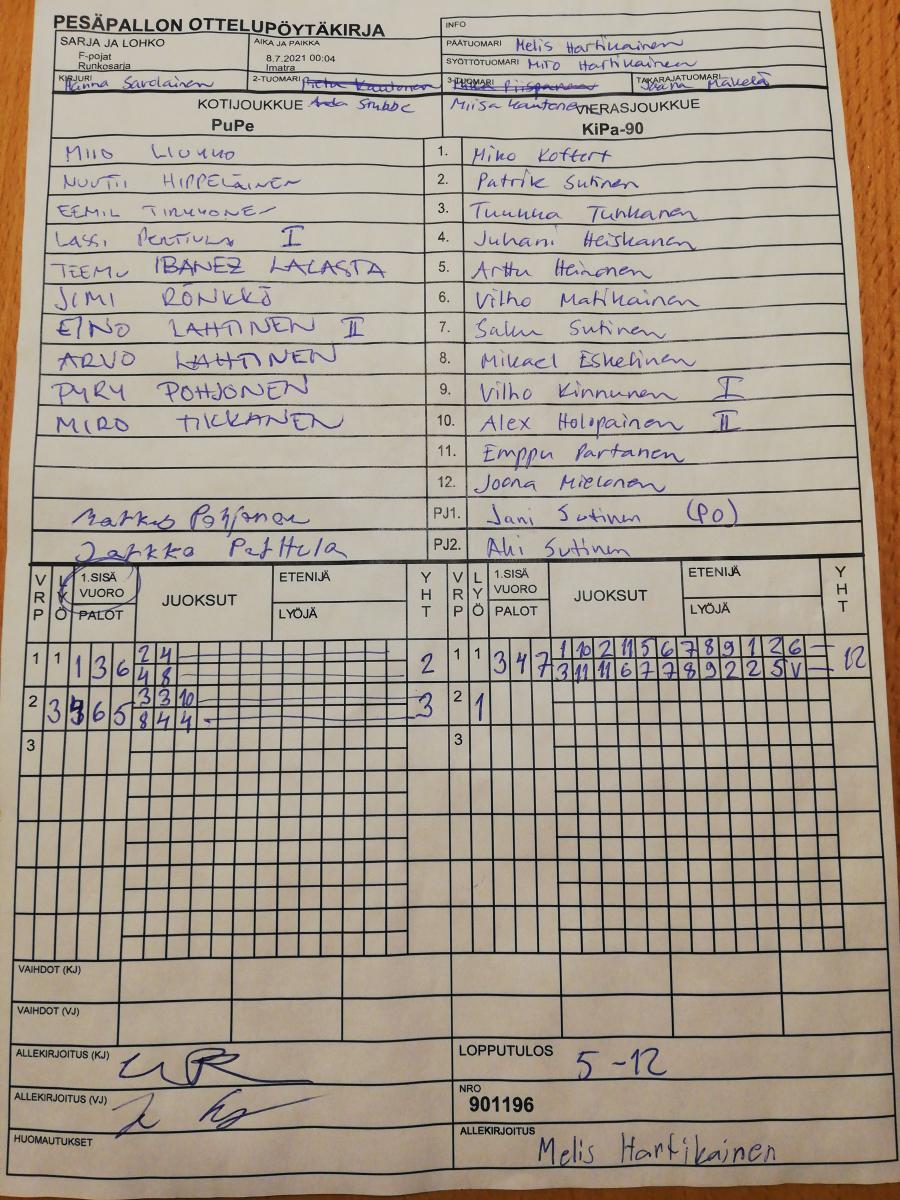 PESÄPALLON OTTELUPÖYTÄKIRJA
INFO
SARJA JA LOHKO
F-pojat
Runkosarja
AIKA JA PAIKKA
8.7.2021 00:04
Imatra
PÄÄTUOMARI Melis Hartikainen
SYÖTTÖTUOMARI Miro Hartikainen
KIRJURI
Hanna Savolainen
2-TUOMARI
3-TUOMARI
Piispanen
TAKARAJATUOMARI
Joona Mäkelä
KOTIJOUKKUE Stubbe
Miisa Kautonen VIERASJOUKKUE
PuPe
KiPa-90
LIUKKO 1. Miko Kottert
NUUTTI HIPPELÄINEN 2. Patrik Sutinen
EEMIL TIRKKONEN 3. Tuukka Tuhkanen
LASSI PENTTULA I 4. Juhani Heiskanen
TEEMU IBANEZ LACASTA 5. Arttu Heinonen
JIMI RÖNKKÖ 6. Vilho Matikainen
EINO LAHTINEN II 7. Saku Sutinen
ARVO LAHTINEN 8. Mikael Eskelinen
PYRY POHJONEN 9. Vilho Kinnunen I
MIRO TIKKANEN 10. Alex Holopainen II
11. Emppu Partanen
12. Joona Mielonen
Markus Pohjonen PJ1. Jani Sutinen (PO)
Jarkko PJ2. Aki Sutinen
VRP LYÖ 1.SISÄ VUORO PALOT JUOKSUT ETENIJÄ LYÖJÄ YHT VRP LYÖ 1.SISÄ VUORO PALOT JUOKSUT ETENIJÄ LYÖJÄ YHT
1 1 1 3 6 2 4 2 1 1 3 4 7 1 10 2 11 5 6 7 8 9 1 2 6 12
4 8 3 11 11 6 7 7 8 9 2 2 5 V
2 3 6 5 3 3 10 3 2 1
8 4 4
3 3
VAIHDOT (KJ)
VAIHDOT (VJ)
ALLEKIRJOITUS (KJ)
LOPPUTULOS 5-12
ALLEKIRJOITUS (VJ)
NRO
901196
HUOMAUTUKSET
ALLEKIRJOITUS
Melis Hartikainen